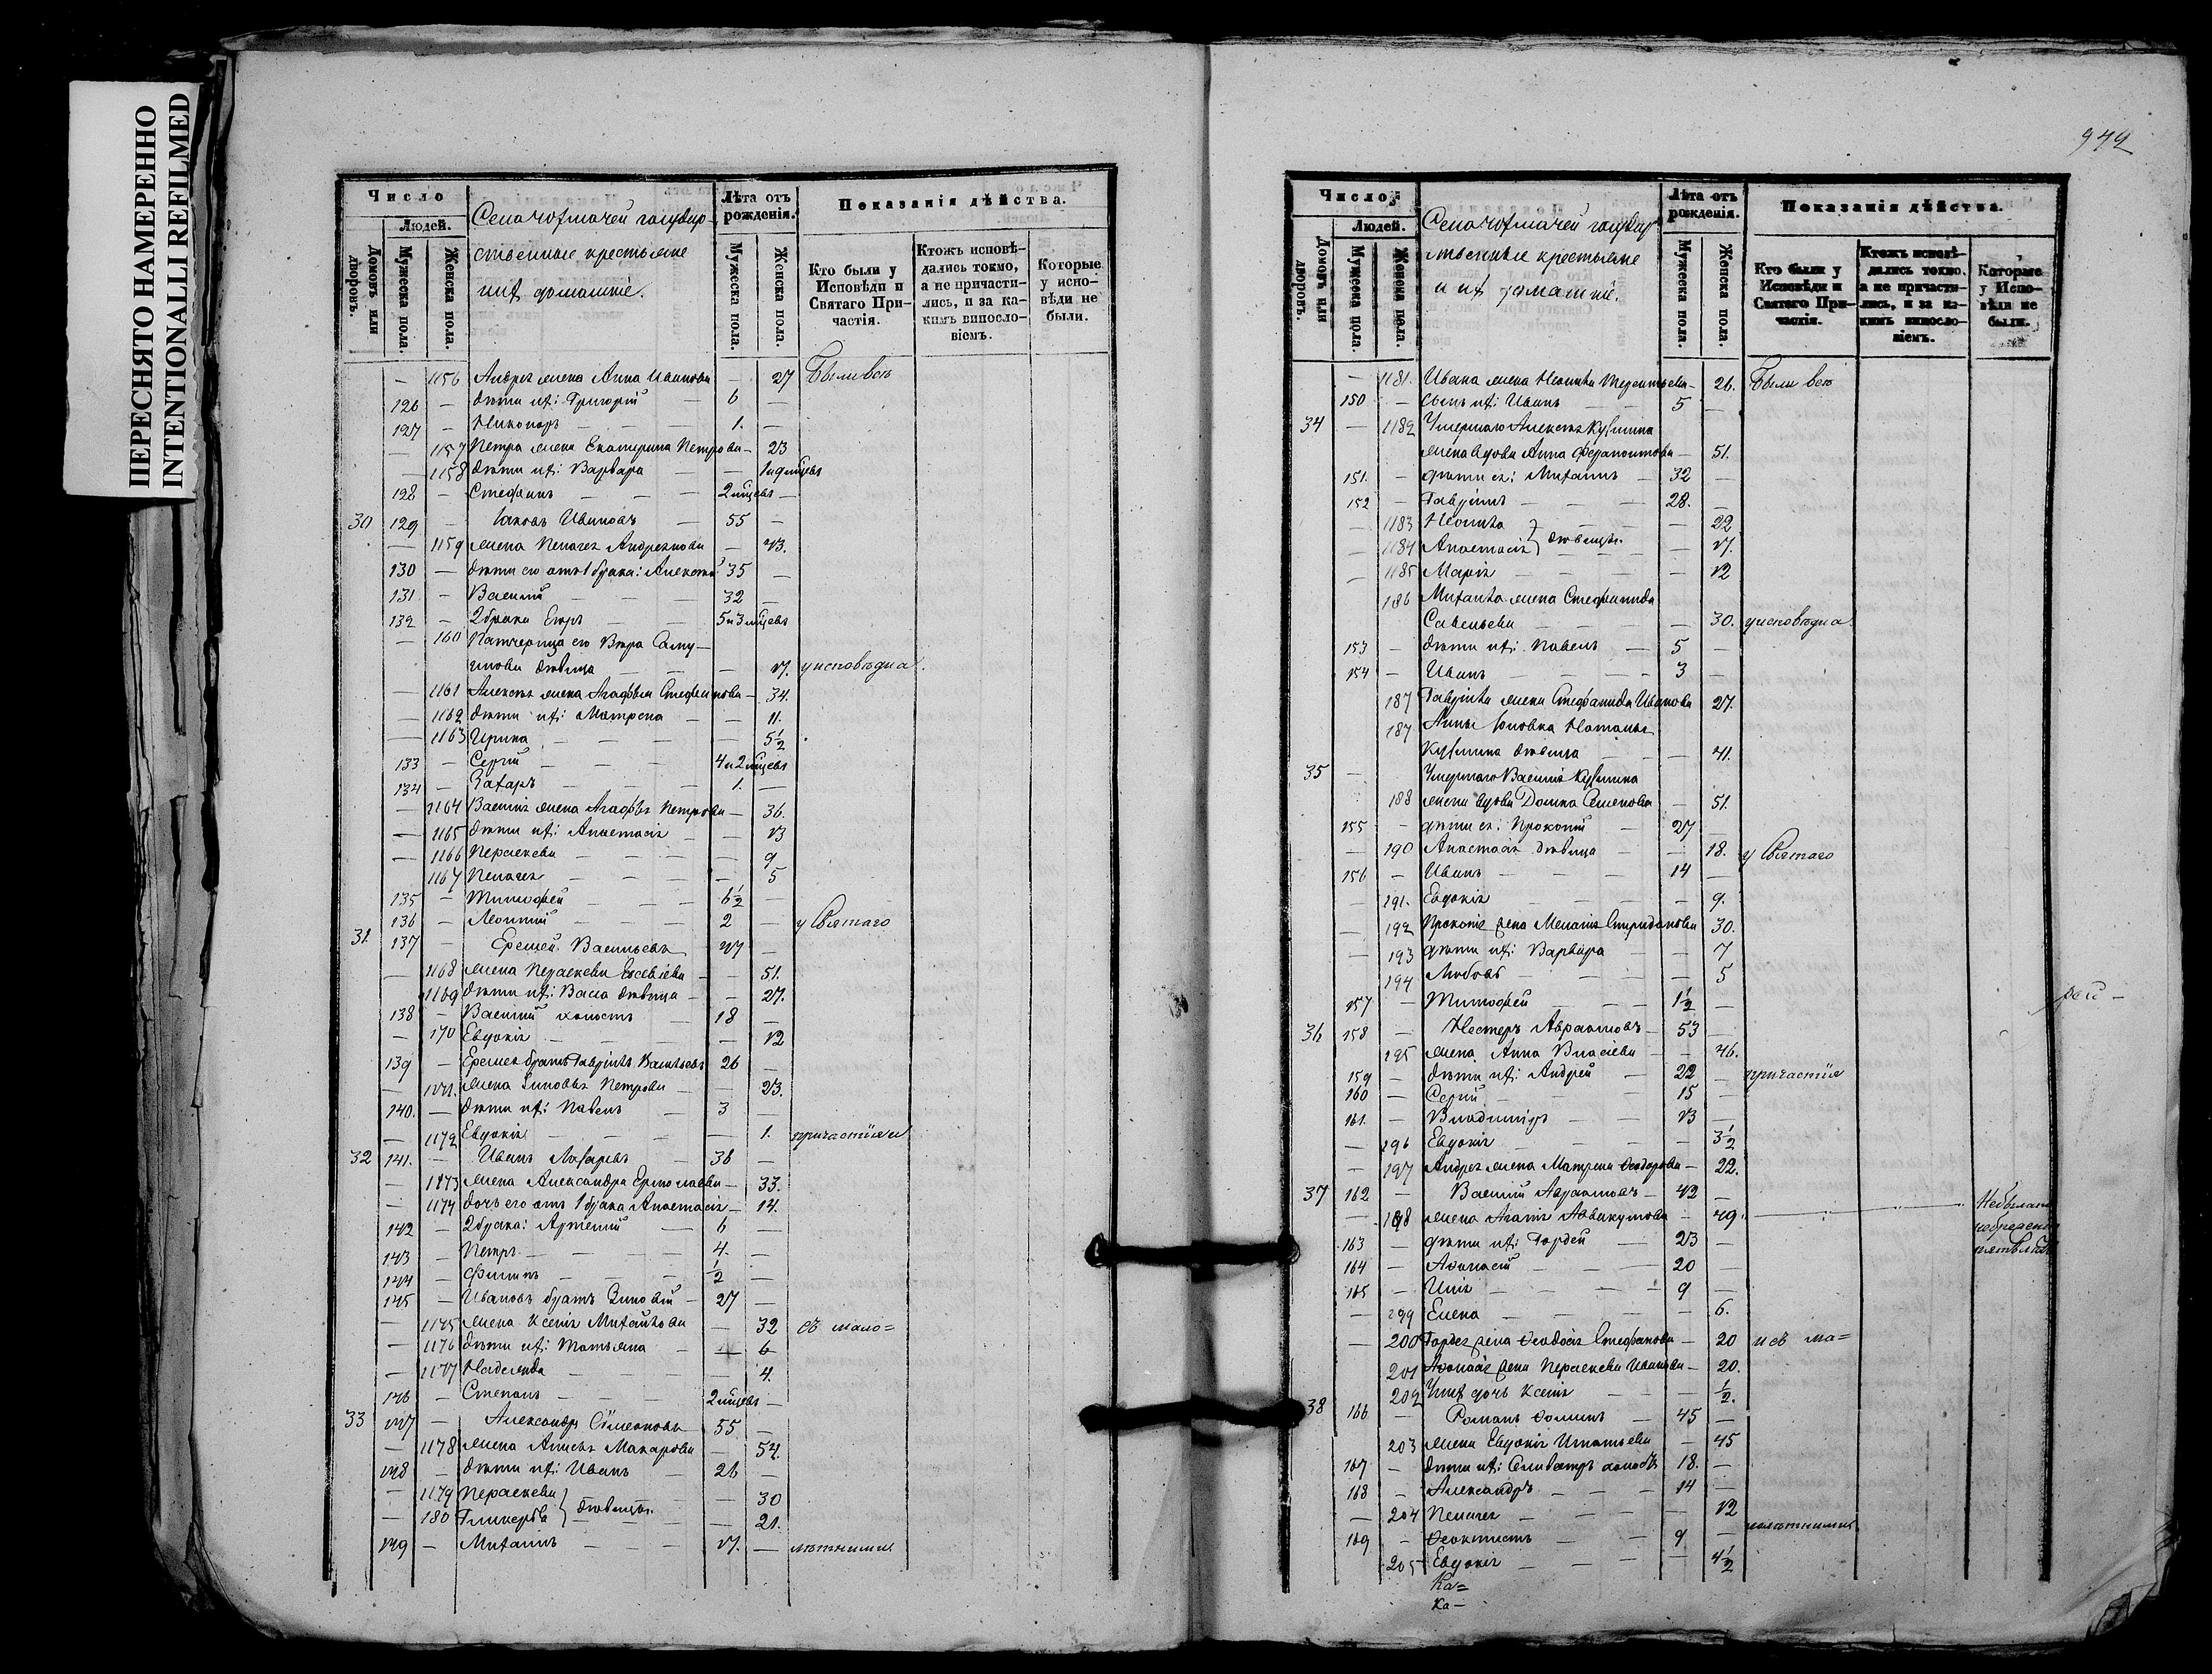 ПЕРЕСНЯТО НАМЕРЕННО
INTENTIONALLI REFILMED
Число
Людей.
Домовъ или дворовъ.
Мужеска пола.
Женска пола.
крестьяне
Лѣта отъ рожденія.
Мужеска пола.
Женска пола.
Показанія дѣйства.
Кто были у Исповѣди и Святаго Причастія.
Ктожъ исповѣдались токмо, а не причастились, и за какимъ винословіемъ.
Которые у исповѣди не были.
— 1156 Андрея жена Анна Иванова — 27 Были всѣ
126 — дѣти ихъ: Григорій — 6 —
127 — Никаноръ — 1. —
— 1157 Петра жена Екатерина Петрова — 23
— 1158 дѣти ихъ: Варвара —
128 — Стефанъ — 2 мѣсяцевъ —
30 129 — Іаковъ Ивановъ — 55 —
— 1159 жена Пелагея Андреянова — 43.
130 — дѣти его отъ 1 брака: Алексѣй 35 —
131 — Василій 32 —
132 — 2 брака Егоръ 5 и 3 мѣсяцевъ
— 160 Падчерица его Вѣра Саму-
илова дѣвица — 17. у исповѣди и
— 1161 Алексѣя жена Агафья Стефанова — 34.
— 1162 дѣти ихъ: Матрена — 11.
— 1163 Ирина — 5½
133 — Сергій 4 и 2 мѣсяцевъ
134 — Захаръ 1. —
— 1164 Василія жена Агафья Петрова — 36.
— 1165 дѣти ихъ: Анастасія — 13
— 1166 Параскева — 9
1167 Пелагея — 5
135 — Тимофей 6½ —
136 — Леонтій 2 — у Святаго
31 137 — Еремей Васильевъ 47 —
— 1168 жена Параскева Евсевіева — 51.
1169 дѣти ихъ: Васса дѣвица — 27.
138 — Василій холостъ 18 —
— 170 Евдокія — 12
139 — Еремея братъ Гавріилъ Васильевъ 26 —
— 1171. жена Зиновья Петрова — 23.
140. — дѣти ихъ: Павелъ 3 —
— 1172 Евдокія — 1. причастія и
32 141. — Иванъ Лазаревъ 36 —
— 1173 жена Александра Ермолаева — 33.
— 1174 дочь его отъ 1 брака Анастасія — 14.
142 — 2 брака: Артемій 6 —
143 — Петръ 4. —
144 — Филипъ ½ —
145 — Ивановъ братъ Зиновій 27 —
— 1175 жена Ксенія Михайлова — 32 съ мало=
— 1176 дѣти ихъ: Татьяна — 6
— 1177 Надежда — 4.
146 — Степанъ 2 мѣсяцевъ —
33 147 — Александръ Симеоновъ 55 —
— 1178 жена Агнея Макарова — 54.
148 — дѣти ихъ: Иванъ 26 —
— 1179 Параскева — 30
— 180 Гликерія } дѣвицы — 21.
149 — Михаилъ 17. — лѣтними
Число
Людей.
Домовъ или дворовъ.
Мужеска пола.
Женска пола.
крестьяне
и ихъ домашніе.
Лѣта отъ рожденія.
Мужеска пола.
Женска пола.
Показанія дѣйства.
Кто были у Исповѣди и Святаго Причастія.
Ктожъ исповѣдались токмо, а не причастились, и за какимъ винословіемъ.
Которые у Исповѣди не были.
— 1181. Ивана жена Неонила Терентьева — 26. Были всѣ
150 — сынъ ихъ: Иванъ 5 —
34 — 1182 Умершаго Алексѣя Кузмина
жена вдова Анна Ферапонтова — 51.
151. — дѣти ея: Михаилъ 32 —
152 — Гавріилъ 28. —
— 1183 Неонила — 22
— 1184 Анастасія } дѣвицы. — 17.
— 1185 Марія — 12
186 Михаила жена Стефанида
Савельева — 30. у исповѣди и
153 — дѣти ихъ: Павелъ 5 —
154 — Иванъ 3 —
187 Гавріила жена Стефанида Иванова 27.
187 Анны золовка Наталья
Кузмина дѣвица — 41.
35 — Умершаго Василія Кузмина
188 жена вдова Домна Семенова — 51.
155 — дѣти ея: Прокопій 27 —
— 190 Анастасія дѣвица — 18. у Святаго
156 — Иванъ 14 —
— 191. Евдокія — 9.
— 192 Прокопія жена Меланія Спиридонова 30.
— 193 дѣти ихъ: Варвара — 7
— 194 Любовь — 5
157 — Тимофей 1½ —
36 158 — Нестеръ Авраамовъ — 53 —
195 жена Анна Власіева — 46.
159 — дѣти ихъ: Андрей 22 — причастія
160 — Сергій 15 —
161. — Владиміръ 13 —
— 196 Евдокія — 3½
— 197 Андрея жена Матрена Ѳеодорова — 22.
37 162 — Василій Авраамовъ — 42 —
— 198 жена Агапія Аввакумова — 49. Не была по
163 — дѣти ихъ: Гордей 23 —
164 — Аѳонасій 20 —
165 — Илія 9 —
— 299 Елена — 6.
— 200 Гордея жена Ѳеодосія Стефанова — 20 и съ ма=
201 Аѳонасія жена Параскева Иванова — 20.
202 Ихъ дочь Ксенія — ½.
38 166 — Романъ Ѳоминъ 45 —
203 жена Евдокія Игнатьева — 45
167 — дѣти ихъ: Селивестръ холостъ 18. —
168 — Александръ 14 —
— 204 Пелагея — 12
169 — Ѳеоктистъ 9 —
205 Евдокія — 4½
Ка=
Ка—